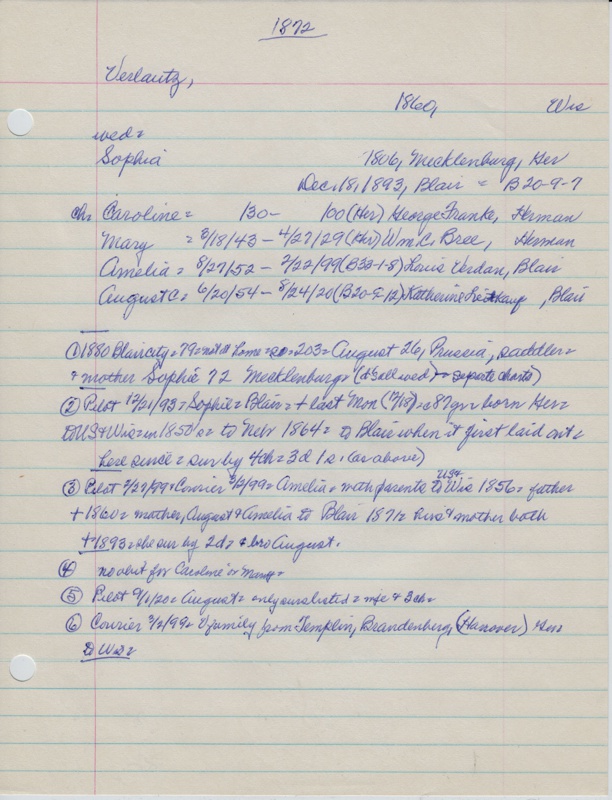 1872
Verlautz,
1860, Wis
wed =
Sophia 1806, Mecklenburg, Ger
Dec. 18, 1893, Blair = B20-9-7
ch: Caroline = 130- 100 (Her) George Franke, Herman
Mary = 3/18/43 - 4/27/29 (Her) Wm. C. Bree, Herman
Amelia = 8/27/52 - 2/22/99 (B33-1-8) Louis Verdan, Blair
August C. = 6/20/54 - 8/24/20 (B20-9-12) Katherine , Blair
① 1880 Blair city = 79 = not at home = 203 = August 26, Prussia, saddler =
+ mother Sophie 72 Mecklenburg = (d's all wed) = separate charts)
② Pilot 12/21/93 = Sophie = Blair = + last Mon (12/18) = 87 yr = born Ger =
to US + Wis = in 1850's = to Nebr 1864 = to Blair when it first laid out =
here since = sur by 4 ch = 3d 1s. (as above)
③ Pilot 2/27/99 + Courier 3/2/99 = Amelia = with parents to US + Wis 1856 = father
+ 1860 = mother, August + Amelia to Blair 1871 = + mother both
+ 1893 = she sur by 2d = + bro August.
④ no obit for Caroline or Mary =
⑤ Pilot 9/1/20 = August = only ours listed = wife + 3 ch =
⑥ Courier 3/2/99 = V family from Templin, Brandenburg, (Hanover) Ger
to Wis =